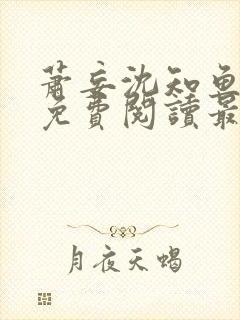 萧妄沈知鱼
免費閱讀最
月夜天蝎